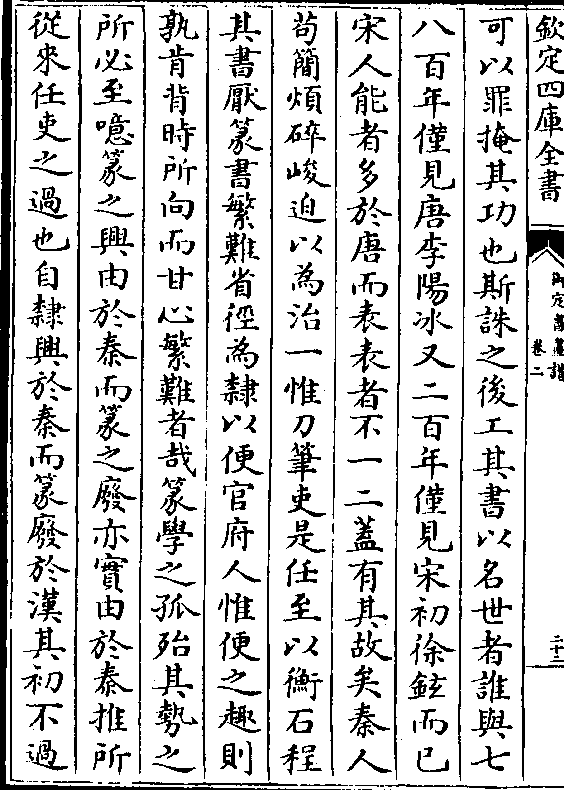 欽定四庫全書
御定書畫譜
卷二
可以罪掩其功也斯誅之後工其書以名世者誰與七
八百年僅見唐李陽冰又二百年僅見宋初徐鉉而已
宋人能者多於唐而表表者不一二蓋有其故矣秦人
苟簡煩碎峻迫以為治一惟刀筆吏是任至以衡石程
其書厭篆書繁難省徑為隸以便官府人惟便之趣則
孰肯背時所向而甘心繁難者哉篆學之孤殆其勢之
所必至噫篆之興由於秦而篆之廢亦實由於秦推所
從來任吏之過也自隸興於秦而篆廢於漢其初不過